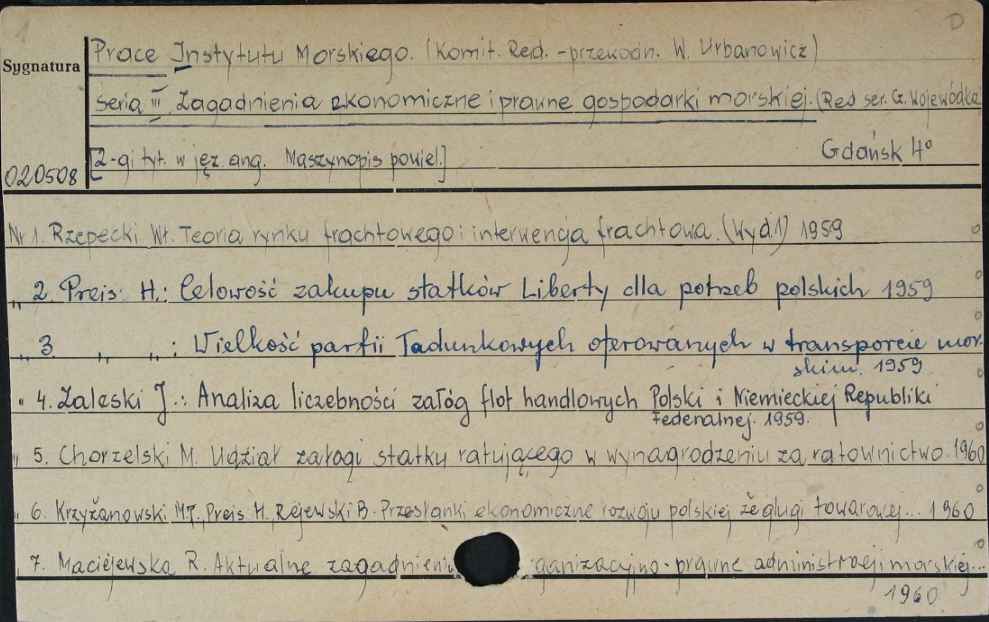 D
Prace Instytutu Morskiego. (Komit. Red. - przewodn. W. Urbanowicz)
Sygnatura
Seria III. Zagadnienia ekonomiczne i prawne gospodarki morskiej. (Red ser. G. Wojewódka
[2-gi tyt. w jęz ang. Maszynopis powiel.] Gdańsk 4°
020508
Nr 1. Rzepecki Wł. Teoria rynku frachtowego i interwencja frachtowa. (Wyd. 1) 1959
" 2. Preis H.: Celowość zakupu statków Liberty dla potrzeb polskich 1959
" 3. " " : Wielkość partii ładunkowych oferowanych w transporcie mor-
skim. 1959
" 4. Zaleski J.: Analiza liczebności załóg flot handlowych Polski i Niemieckiej Republiki
Federalnej. 1959.
" 5. Chorzelski M. Udział załogi statku ratującego w wynagrodzeniu za ratownictwo. 1960
" 6. Krzyżanowski M., Preis H., Rejewski B. Przesłanki ekonomiczne rozwoju polskiej żeglugi towarowej... 1960
" 7. Maciejewska R. Aktualne zagadnieni ganizacyjno-prawne administracji morskiej...
1960